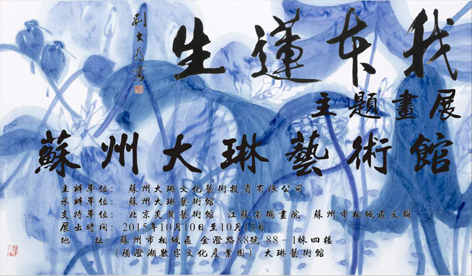 我本蓮生
主題畫展
蘇州大琳藝術館
主辦單位: 蘇州大琳文化藝術投資有限公司
承辦單位: 蘇州大琳藝術館
支持單位: 北京炎黃藝術館 畫院 蘇州市相城區文聯
展出時間: 2015年10月10日至10月
地 址: 蘇州市相城區 金澄路88號 88-1棟四樓
(陽澄湖數字文化產業園) 大琳藝術館